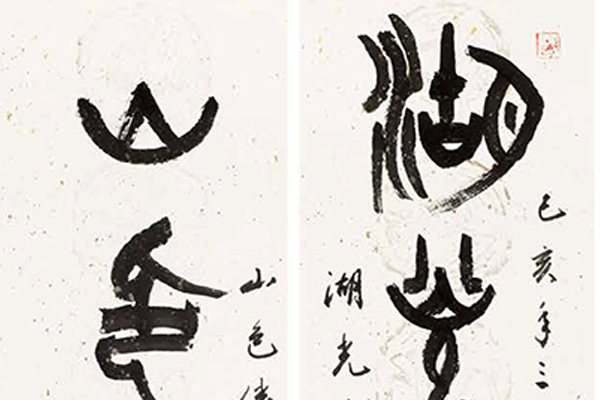 己亥年三
湖光
湖光
山色
山色